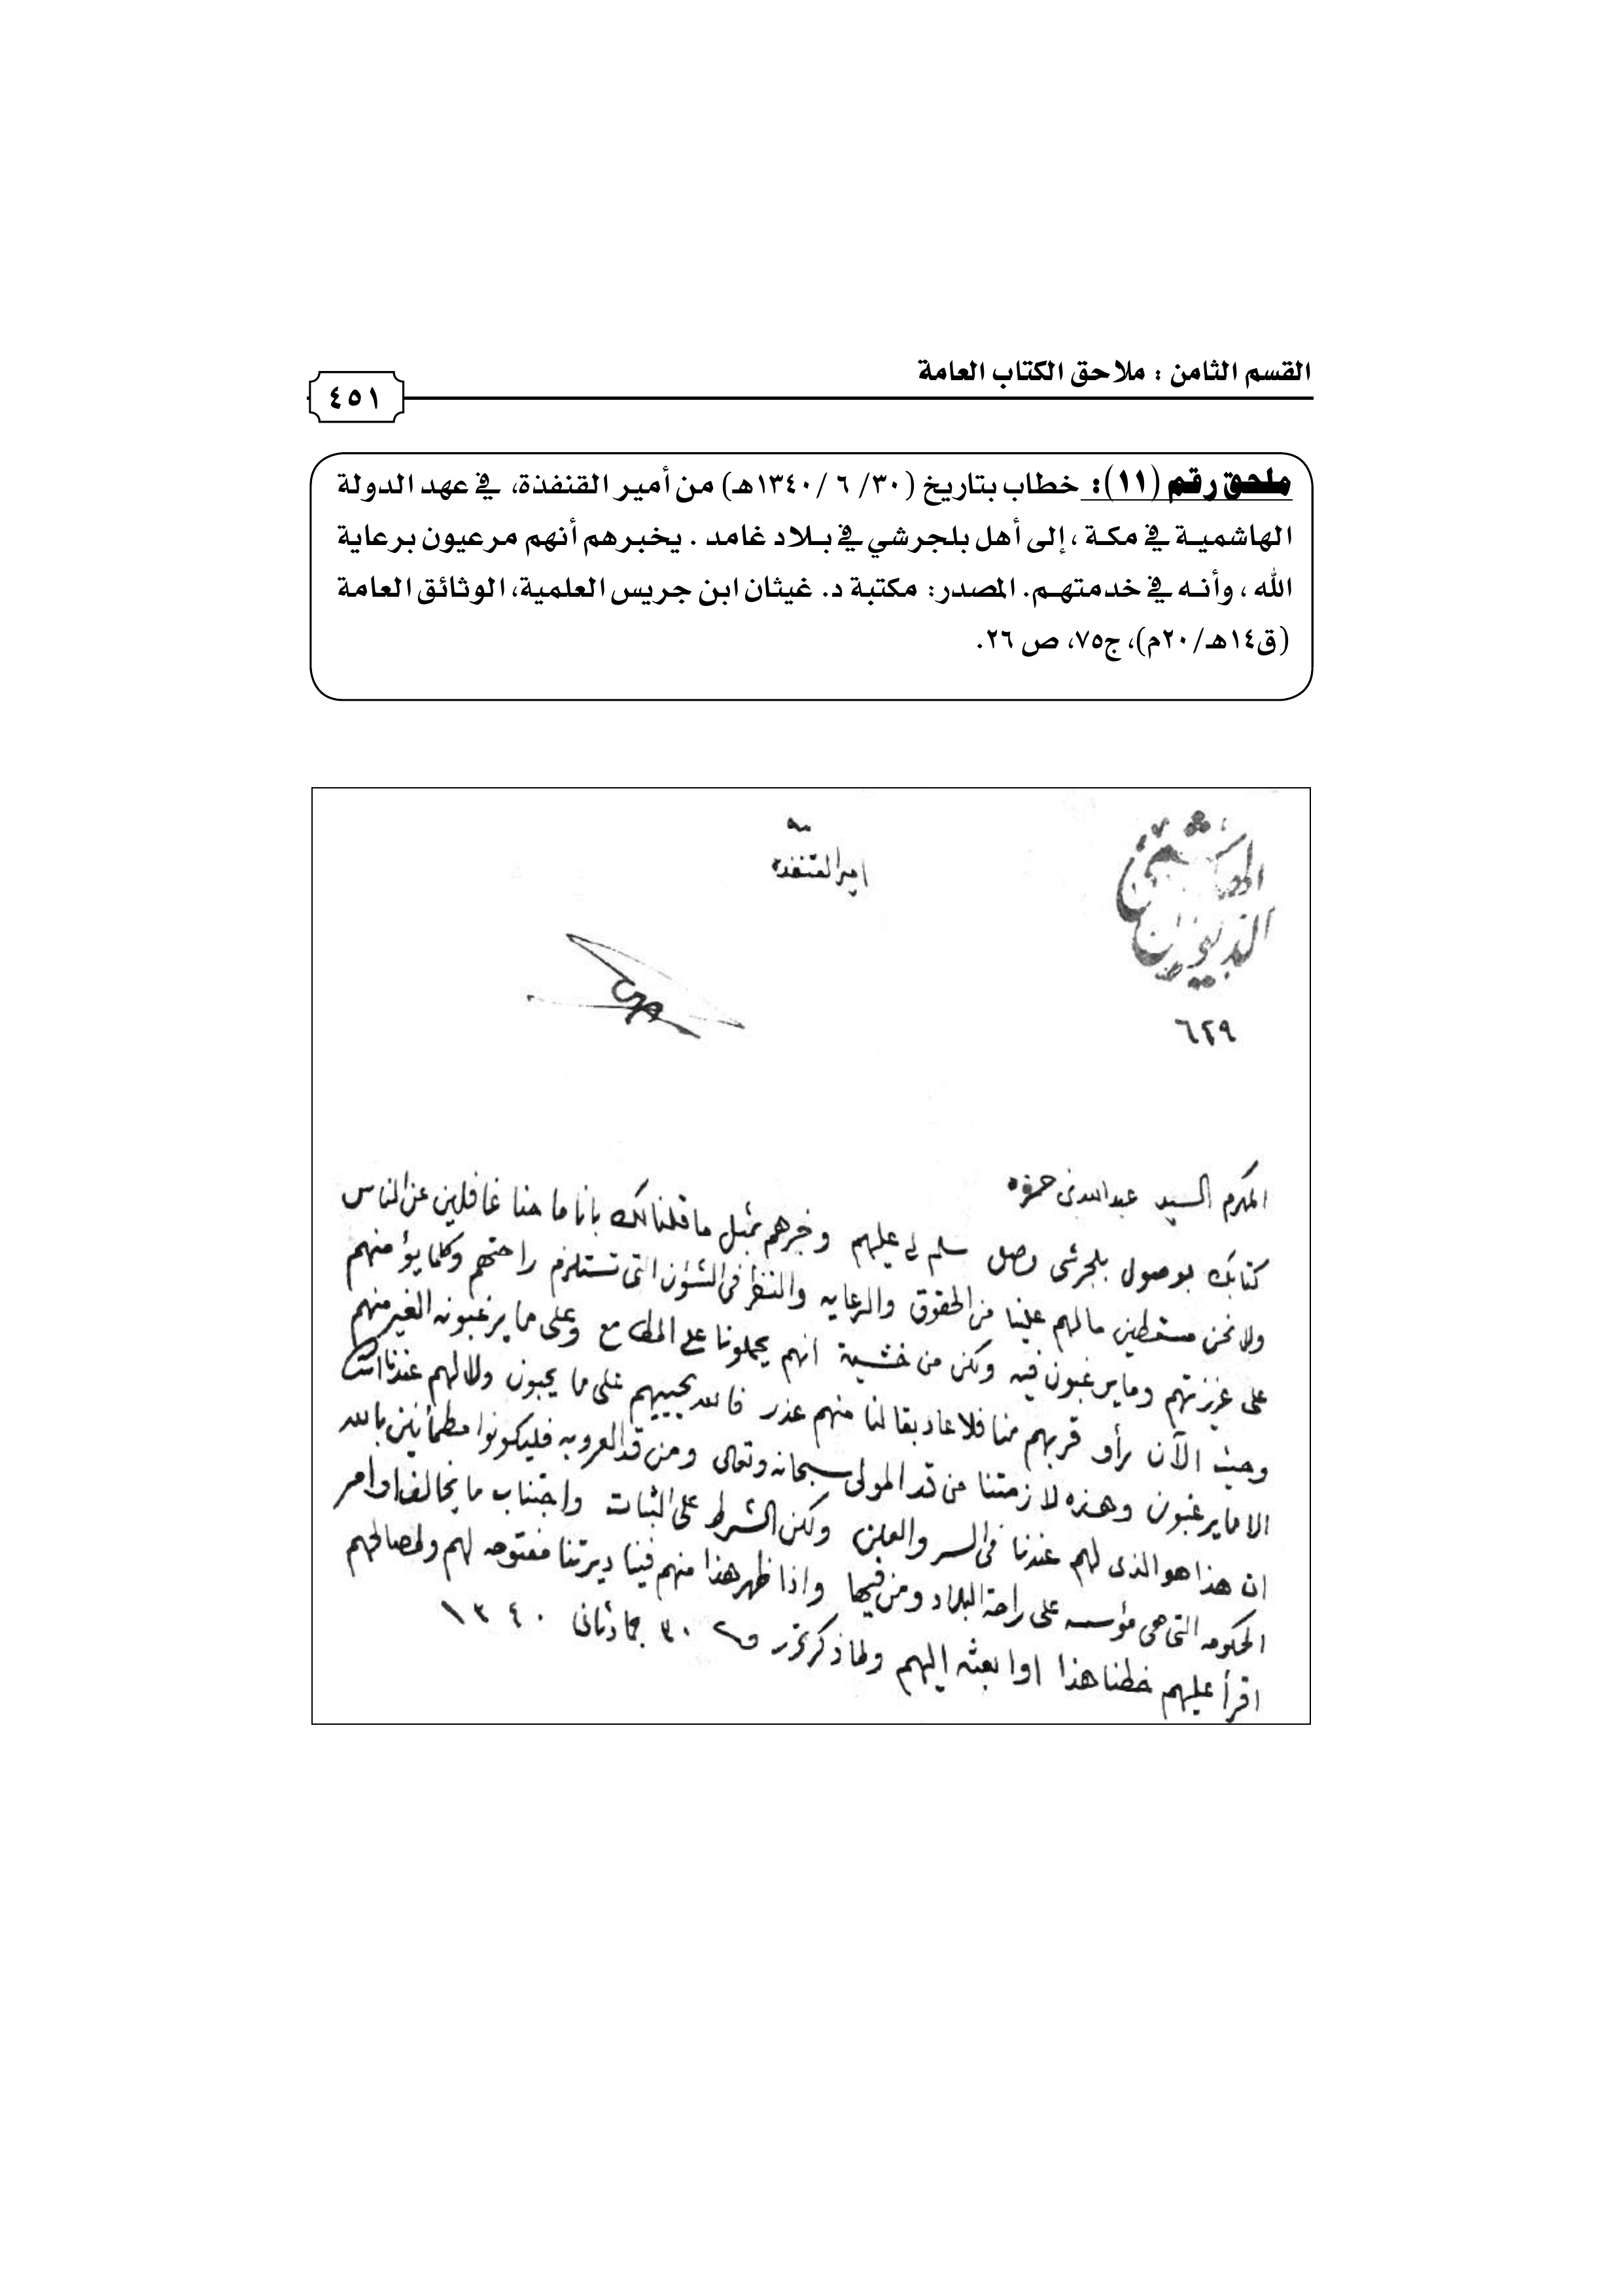 القسم الثامن : ملاحق الكتاب العامة
٤٥١
ملحق رقم (١١): خطاب بتاريخ (٣٠/ ٦ /١٣٤٠هـ) من أمير القنفذة، في عهد الدولة
الهاشمية في مكة ، إلى أهل بلجرشي في بلاد غامد . يخبرهم أنهم مرعيون برعاية
الله ، وأنه في خدمتهم. المصدر: مكتبة د. غيثان ابن جريس العلمية، الوثائق العامة
(ق١٤هـ/٢٠م)، ج٧٥، ص ٢٦.
امير القنفذه
الديوان الهاشمي
٦٢٩
المكرم السيد عبدالله بن حمزه
كتابك بوصول بلجرشى وصل سلم لى عليهم وخبرهم بمثل ما قلنا لك باننا ما حنا غافلين عن الناس
ولا نحن مسقطين مالهم علينا من الحقوق والرعايه والنظر فى الشؤن التى تستلزم راحتهم وكلما يؤمنهم
على عزرتهم وما يرغبون فيه ولكن من خشية انهم يحملونا على المطامع وعلى ما يرغبونه الغير منهم
وحيث الآن رأو قربهم منا فلا عاد بقا لنا منهم عذر فالله يحييهم على ما يحبون ولا لهم عندنا
الا ما يرغبون وهذه لازمتنا من قد المولى سبحانه وتعالى ومن قد العروبه فليكونوا مطمأنين بالله
ان هذا هو الذى لهم عندنا فى السر والعلن ولكن الشرط على الثبات واجتناب ما يخالف اوامر
الحكومه التى هى مؤسسه على راحة البلاد ومن فيها واذا ظهر هذا منهم فينا ديرتنا مفتوحه لهم ولمصالحهم
اقرأ عليهم خطنا هذا اوابعثه اليهم ولما ذكر تحرر فى ٣٠ جمادثانى ١٣٤٠